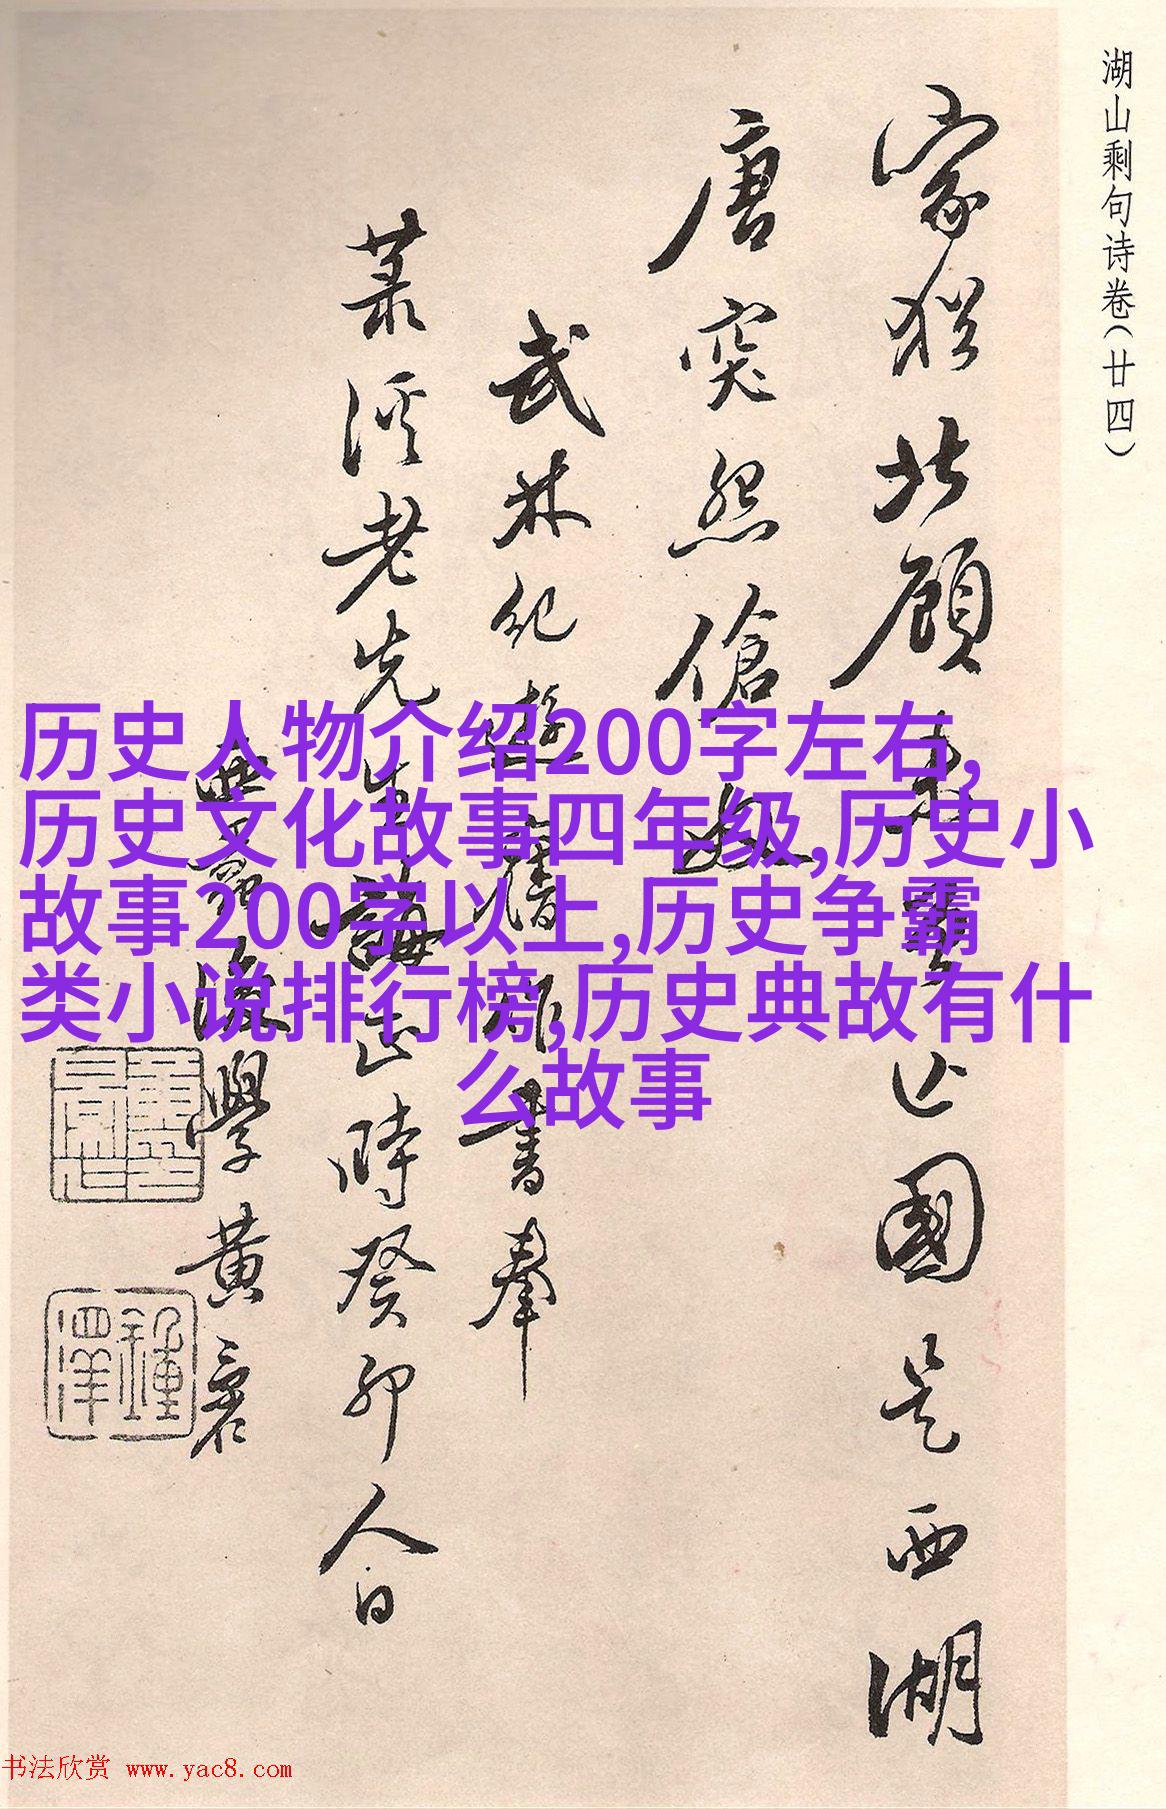 湖山剩句诗卷(廿四)
家犹北顾 亡國是西湖
唐突然傖奴
武林纪遊舊作書奉
老先生誨正時癸卯人日
後學黄裳
历史人物介绍200字左右,
历史文化故事四年级,历史小
故事200字以上,历史争霸
类小说排行榜,历史典故有什
么故事
书法欣赏 www.yac8.com